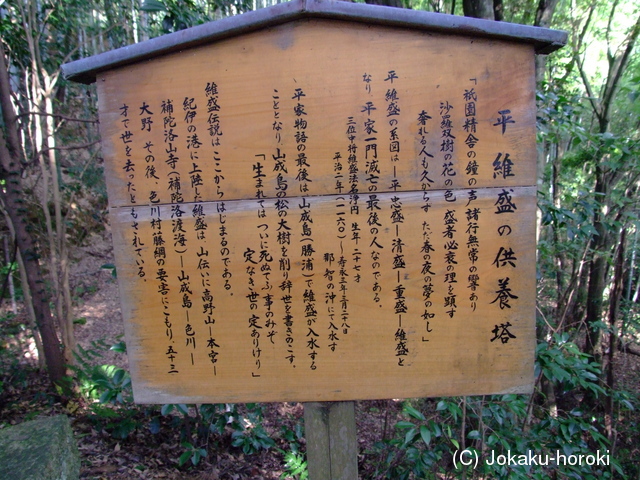 平維盛の供養塔
「祇園精舎の鐘の声 諸行無常の響あり
沙羅双樹の花の色 盛者必衰の理を顕す
奢れる人も久からず ただ春の夜の夢の如し」
平維盛の系図は―平忠盛―清盛―重盛―維盛と
なり 平家一門滅亡の最後の人なのである。
三位中将維盛法名浄円 生年二十七才
平治二年(一一六〇)～寿永三年三月二八日
那智の沖にて入水す
平家物語の最後は山成島(勝浦)で維盛が入水する
こととなり 山成島の松の大樹を削り辞世を書きのこす。
「生まれては ついに死ぬてふ事のみぞ
定なき世の定ありけり」
維盛伝説はここからはじまるのである。
紀伊の港に上陸した維盛は 山伝いに高野山―本宮―
補陀洛山寺(補陀洛渡海)―山成島―色川―
大野 その後、色川村藤綱の要害にこもり、五十三
才で世を去ったともされている。
(C) Jokaku-horoki